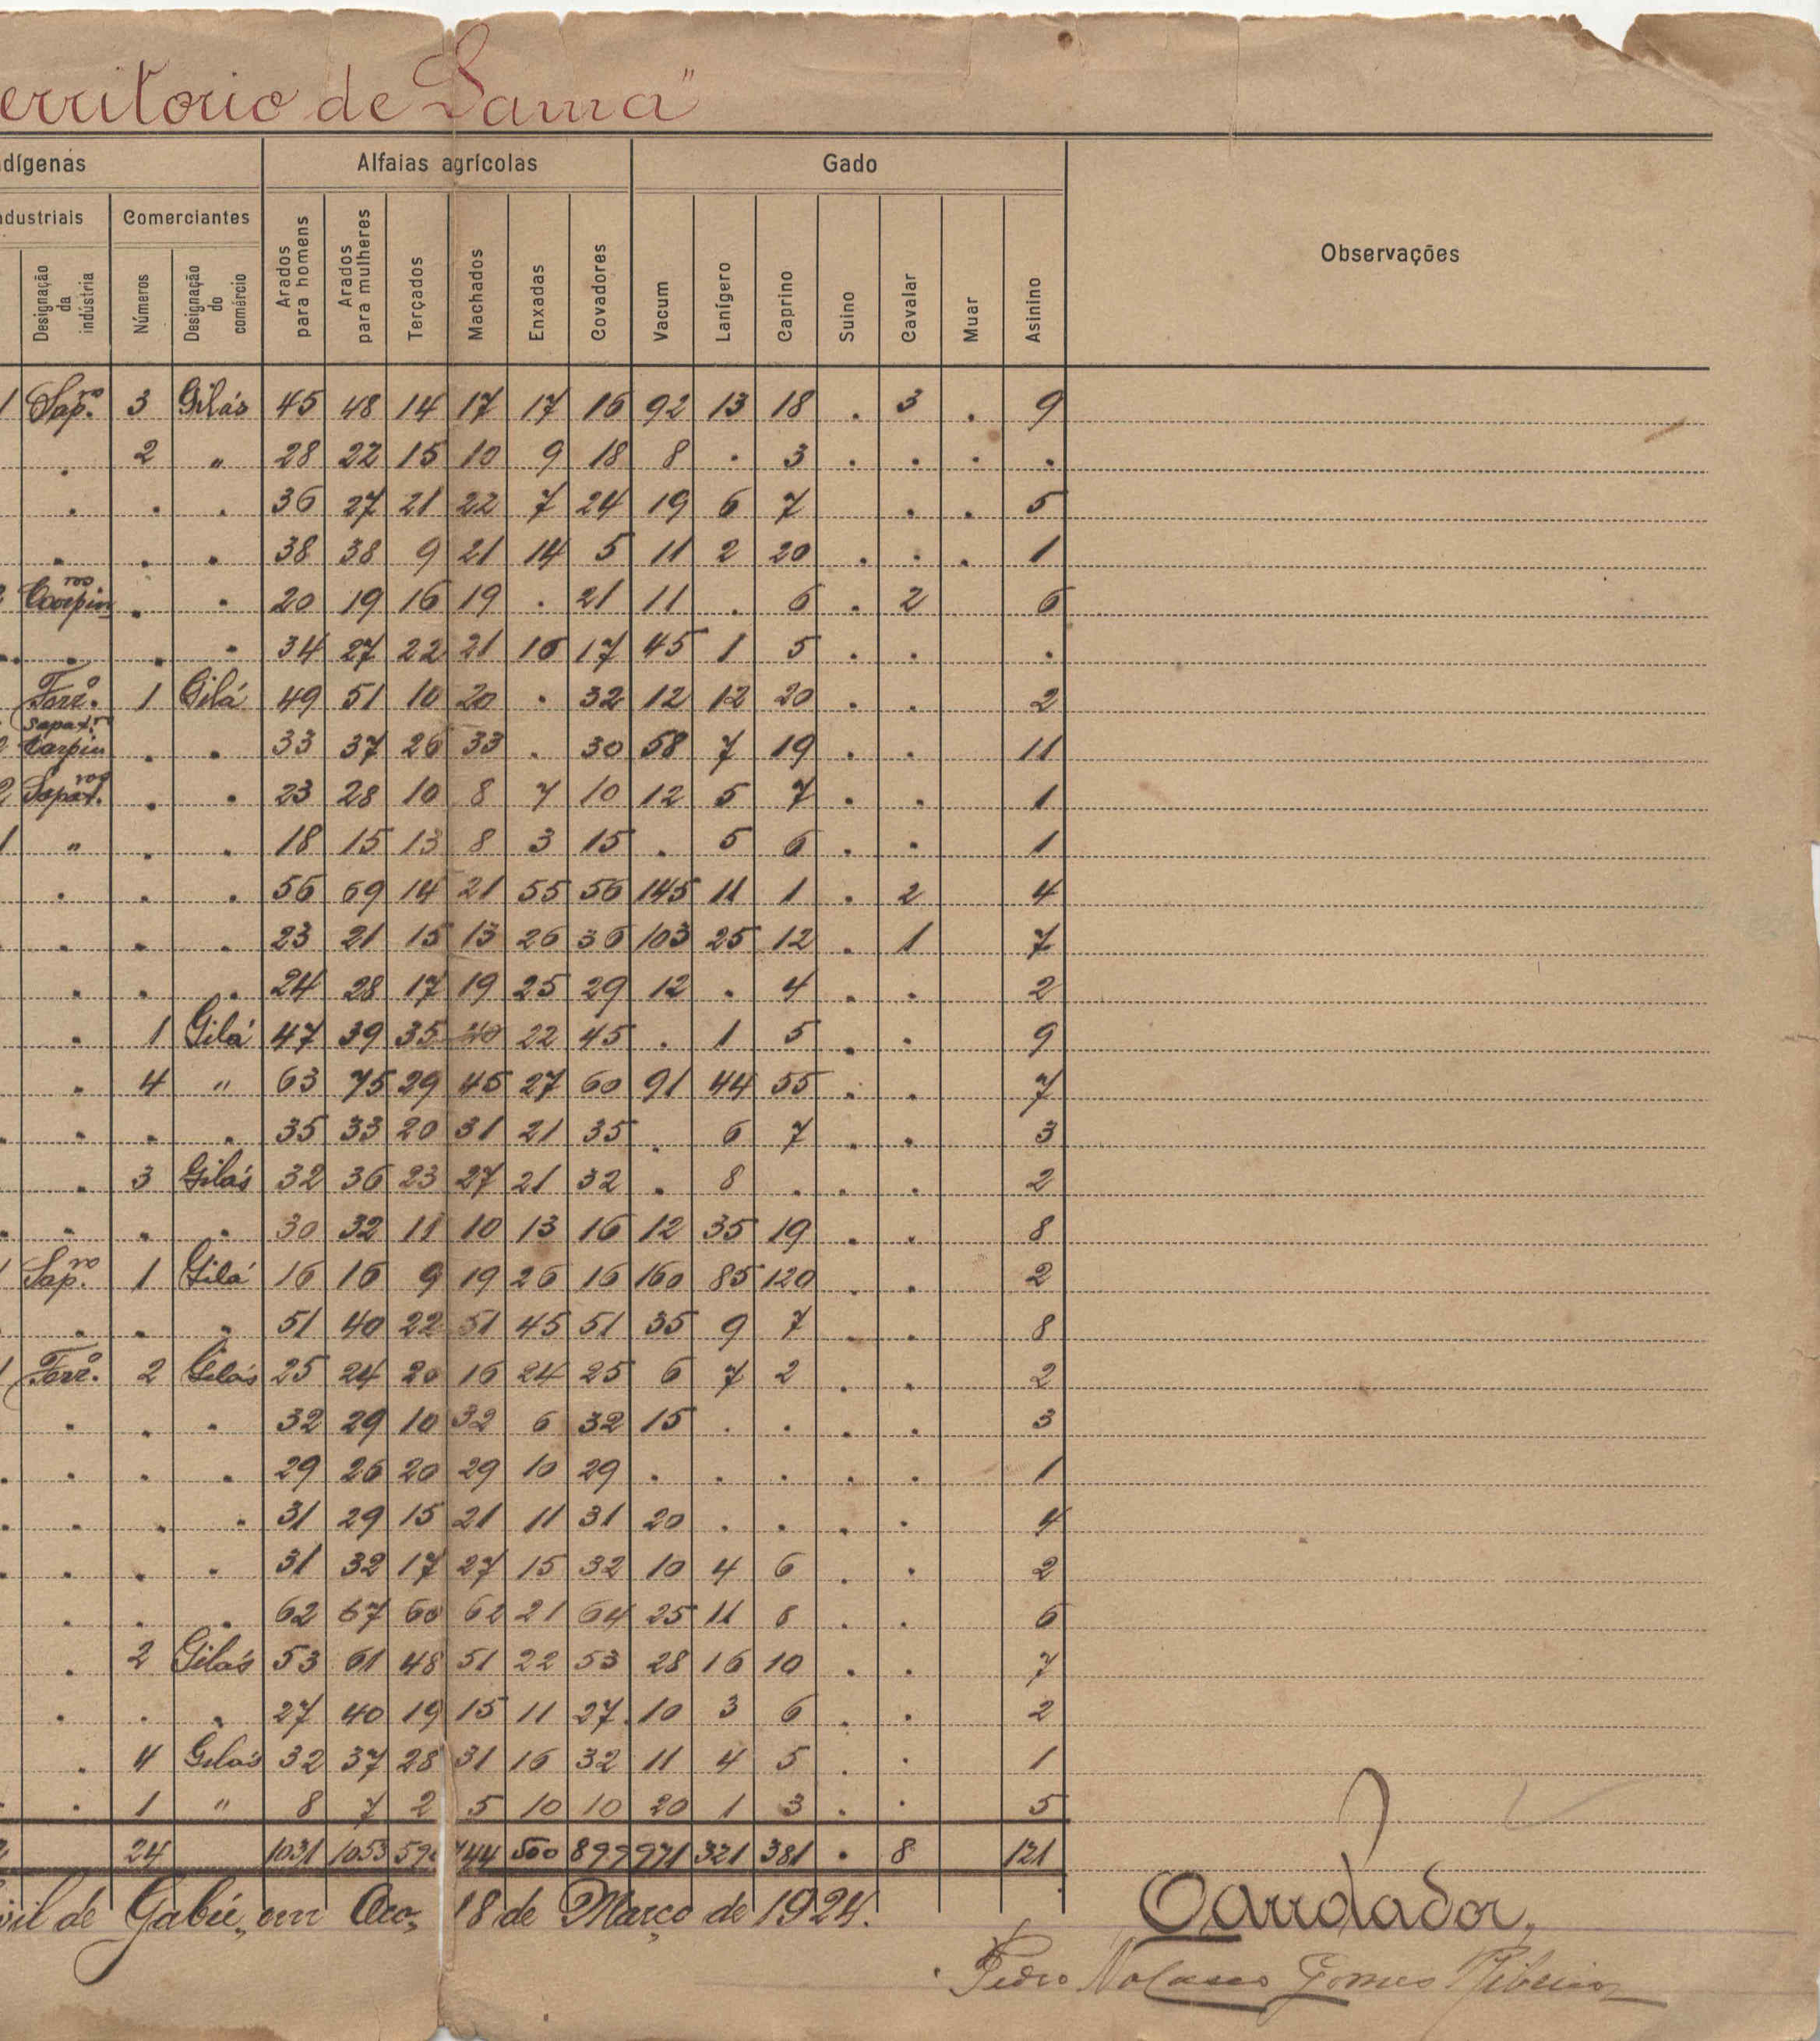 erritorio de Sama"
dígenas Alfaias agrícolas Gado Observações
ndustriais Comerciantes
Designação da indústria Números Designação do comércio Arados para homens Arados para mulheres Terçados Machados Enxadas Covadores Vacum Lanígero Caprino Suino Cavalar Muar Asinino
1 Sap.ro 3 Gilás 45 48 14 17 17 16 92 13 18 . 3 . 9
. 2 " 28 22 15 10 9 18 8 . 3 . . . .
. . . 36 27 21 22 7 24 19 6 7 . . 5
. . . 38 38 9 21 14 5 11 2 20 . . . 1
2 Carpin.ros . . 20 19 16 19 . 21 11 . 6 . 2 6
. . . . 34 27 22 21 16 17 45 1 5 . . .
Ferr.o 1 Gilá 49 51 10 20 . 32 12 12 20 . . 2
2 sapat.ro carpin . . 33 37 26 33 . 30 58 7 19 . . 11
2 Sapat.ros . . 23 28 10 8 7 10 12 5 7 . . 1
1 " . . 18 15 13 8 3 15 . 5 6 . . 1
. . . 56 69 14 21 55 56 145 11 1 . 2 4
. . . . 23 21 15 13 26 36 103 25 12 . 1 7
. . . 24 28 17 19 25 29 12 . 4 . . 2
. 1 Gilá 47 39 35 40 22 45 . 1 5 . . 9
. 4 " 63 75 29 45 27 60 91 44 55 . . 7
. . . . 35 33 20 31 21 35 . 6 7 . . 3
. 3 Gilás 32 36 23 27 21 32 . 8 . . . 2
. . . . 30 32 11 10 13 16 12 35 19 . . 8
1 Sap.ro 1 Gilá 16 16 9 19 26 16 160 85 120 . . 2
. . . . 51 40 22 51 45 51 35 9 7 . . 8
1 Ferr.o 2 Gilás 25 24 20 16 24 25 6 7 2 . . 2
. . . 32 29 10 32 6 32 15 . . . . 3
. . . . 29 26 20 29 10 29 . . . . . 1
. . . . 31 29 15 21 11 31 20 . . . . 4
. . . . 31 32 17 27 15 32 10 4 6 . . 2
. . . 62 67 60 62 21 64 25 11 8 . . 6
. 2 Gilás 53 61 48 51 22 53 28 16 10 . . 7
. . . 27 40 19 15 11 27 10 3 6 . . 2
. 4 Gilás 32 37 28 31 16 32 11 4 5 . . 1
. . 1 " 8 7 2 5 10 10 20 1 3 . . 5
24 1031 1053 744 500 899 971 321 381 . 8 121
de Gabú, em 18 de Março de 1924.
O arrolador,
Pedro Nolasco Gomes Ribeiro